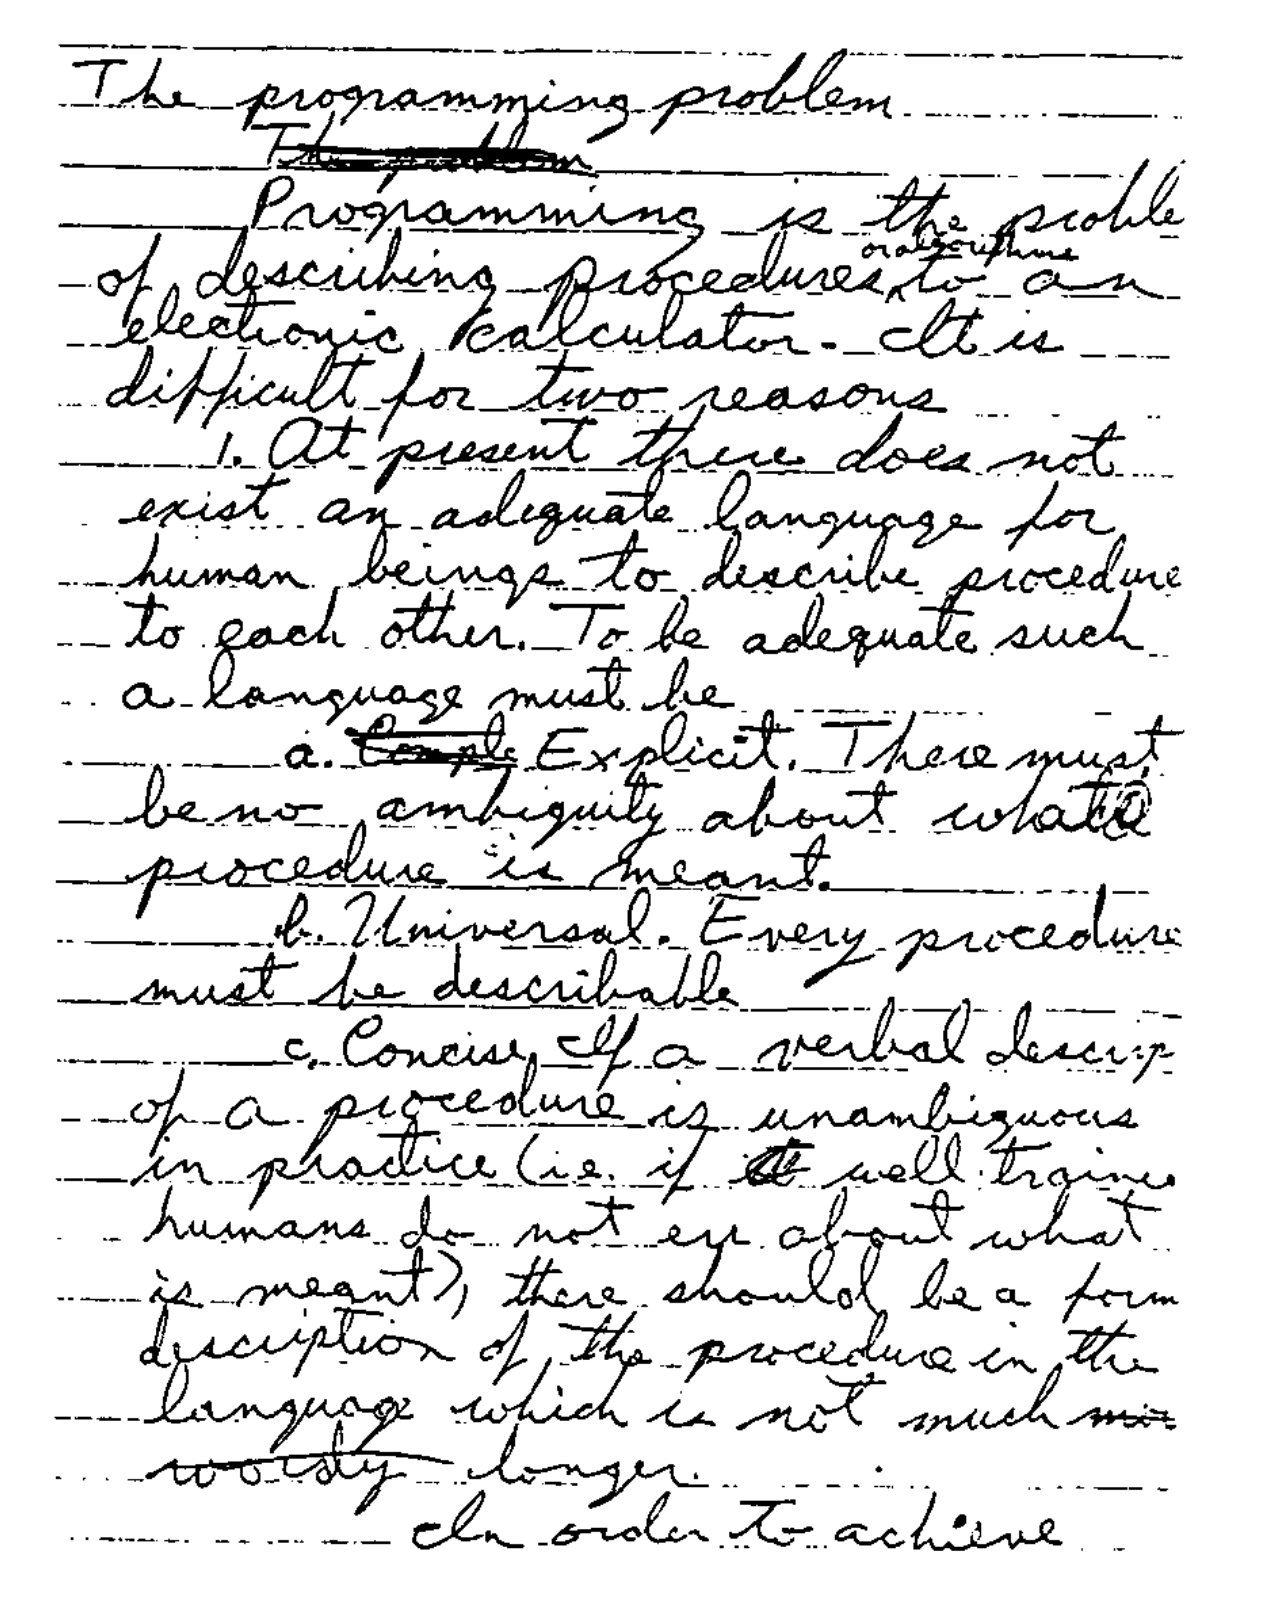 The programming problem
The problem
Programming is the proble
or algorithms
of describing procedures to an
electronic calculator. It is
difficult for two reasons
1. At present there does not
exist an adequate language for
human beings to describe procedure
to each other. To be adequate such
a language must be
a. Comple Explicit. There must
be no ambiguity about what
procedure is meant.
b. Universal. Every procedure
must be describable
c. Concise. If a verbal descrip
of a procedure is unambiguous
in practice (i.e. if well traine
humans do not err about what
is meant), there should be a form
description of the procedure in the
language which is not much mor
wordy longer.
In order to achieve